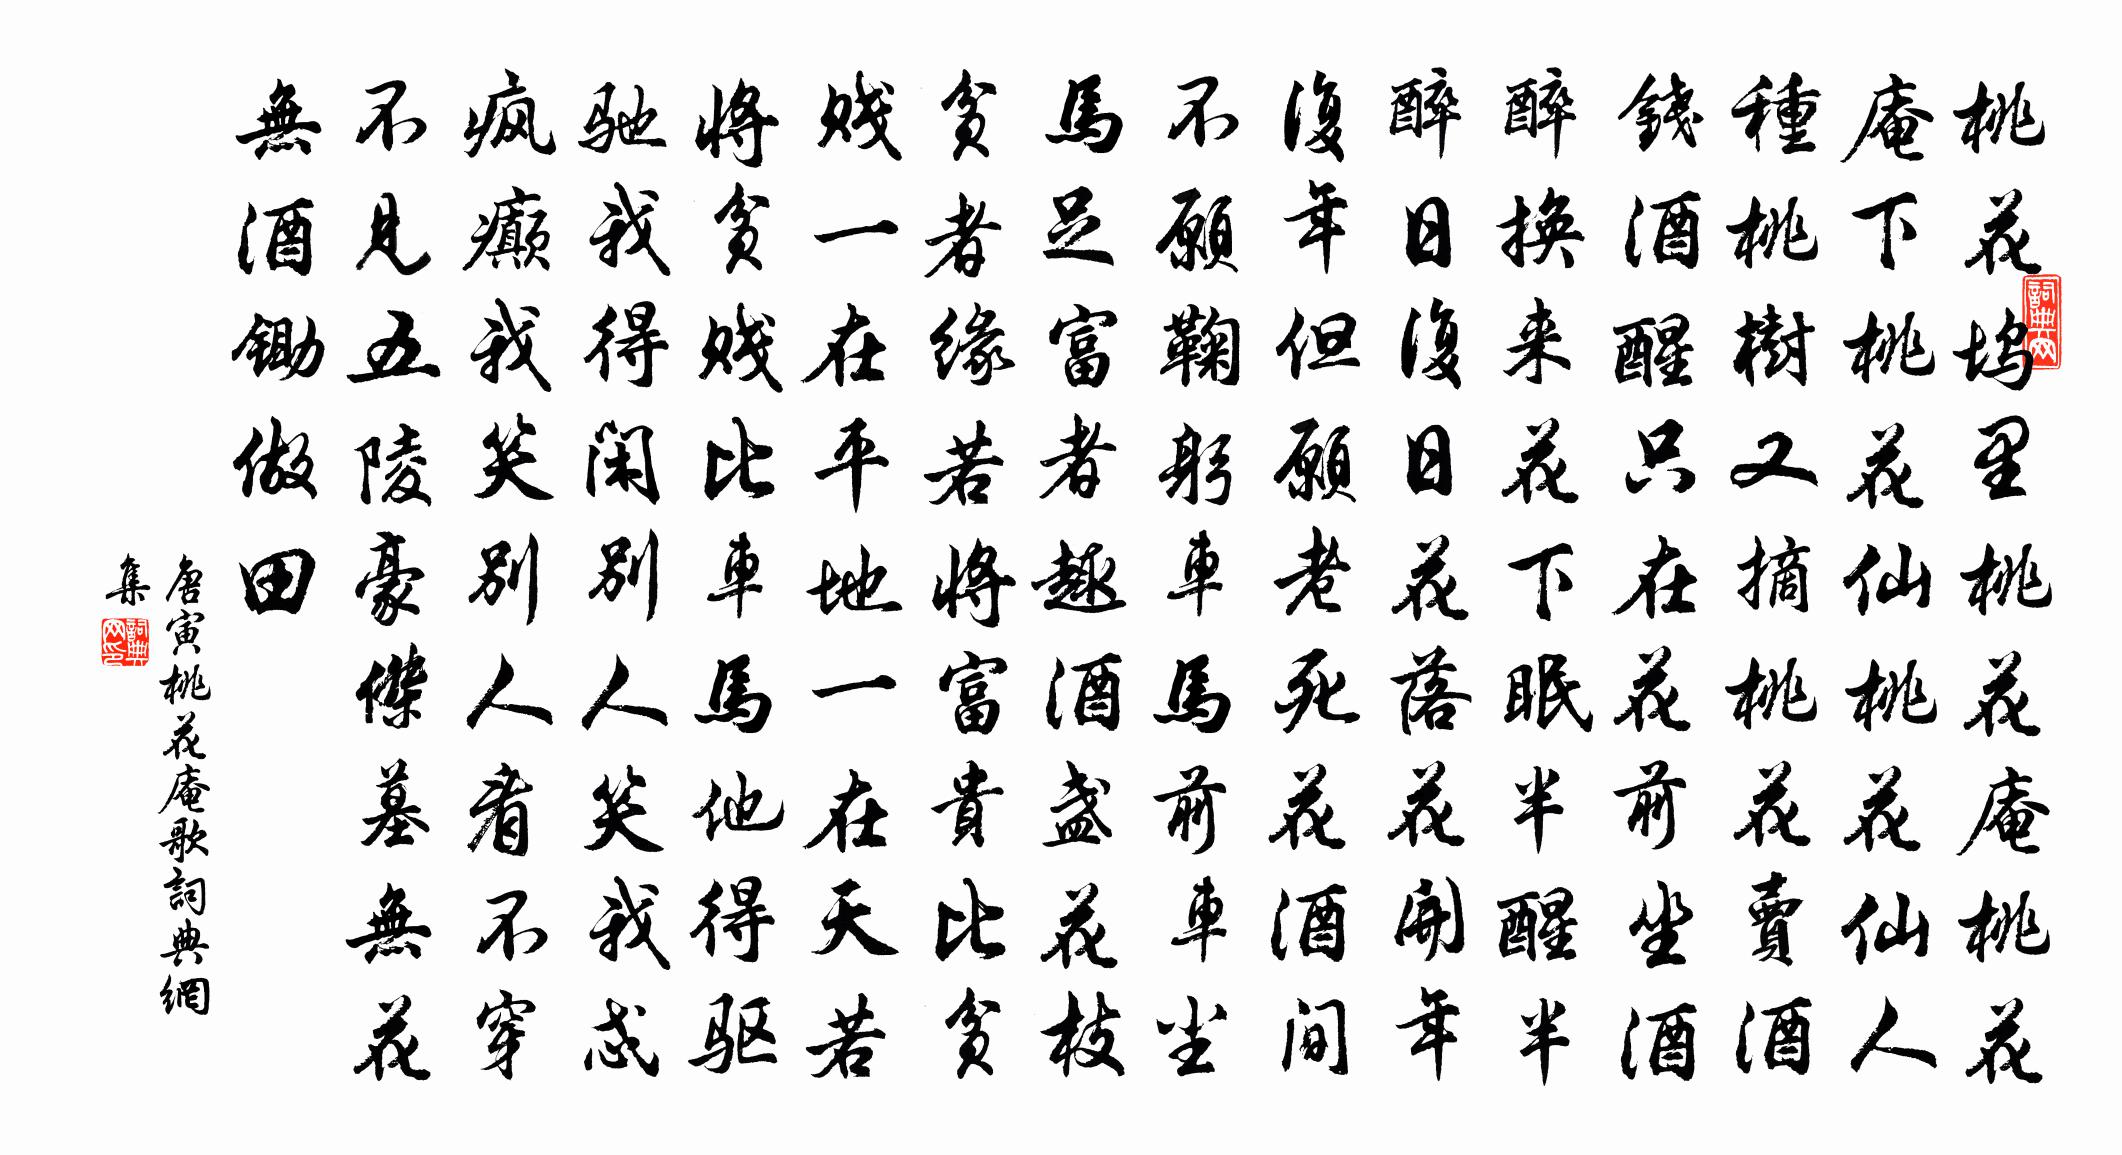 桃花坞里桃花庵桃花
庵下桃花仙桃花仙人
種桃樹又摘桃花賣酒
錢酒醒只在花前坐酒
醉換来花下眠半醒半
醉日復日花落花開年
復年但願老死花酒间
不願鞠躬車馬前車尘
馬足富者趣酒盏花枝
貧者缘若将富貴比貧
贱一在平地一在天若
将貧贱比車馬他得驱
驰我得闲别人笑我忒
疯癲我笑别人看不穿
不見五陵豪傑墓無花
無酒锄做田
唐寅桃花庵歌詞典網
集
詞典网
詞典网印